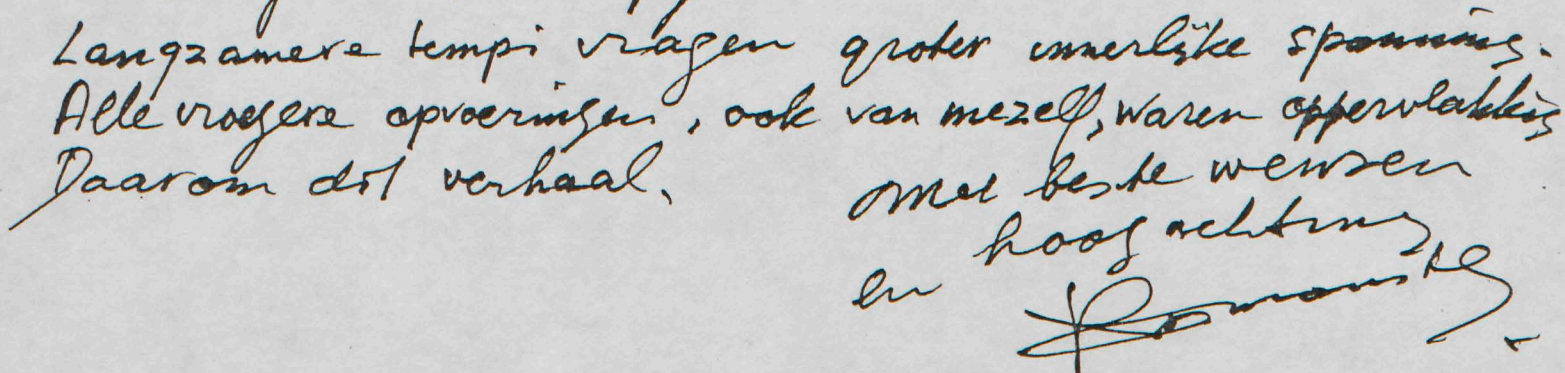 Langzamere tempi vragen groter innerlijke spanning.
Alle vroegere opvoeringen, ook van mezelf, waren oppervlakkig
Daarom dit verhaal.
Met beste wensen
en hoogachting